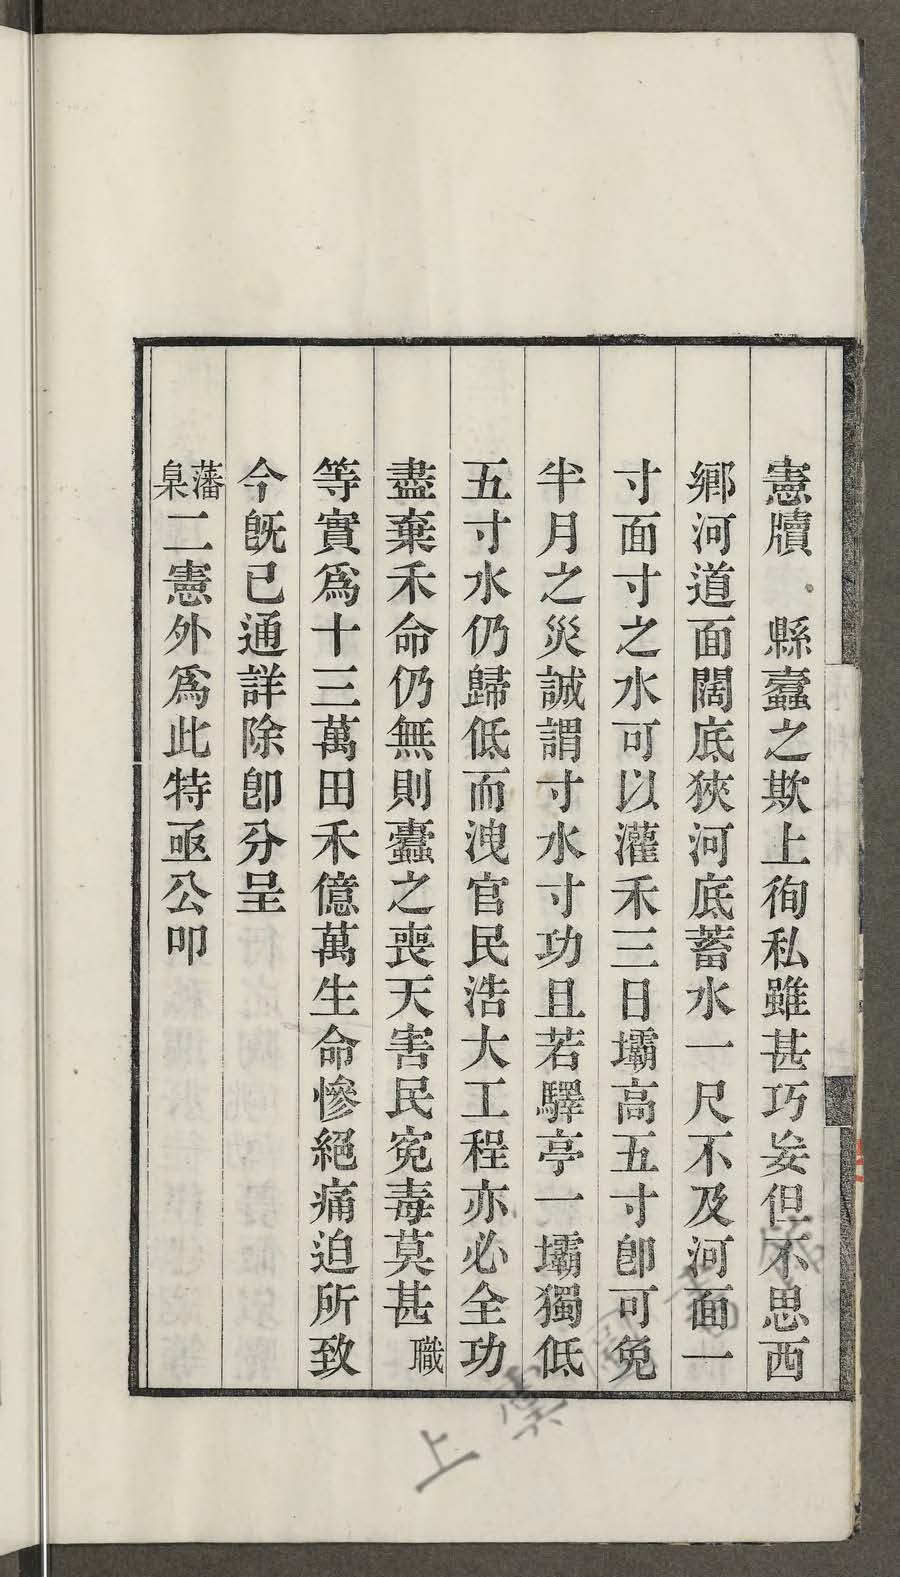 憲牘　縣蠹之欺上徇私雖甚巧妄但不思西
鄉河道面闊底狹河底蓄水一尺不及河面一
寸面寸之水可以灌禾三日壩高五寸卽可免
半月之災誠謂寸水寸功且若驛亭一壩獨低
五寸水仍歸低而洩官民浩大工程亦必全功
盡棄禾命仍無則蠹之喪天害民寃毒莫甚職
等實爲十三萬田禾億萬生命慘絕痛迫所致
今旣已通詳除卽分呈
藩臬二憲外爲此特亟公叩
上虞圖書館